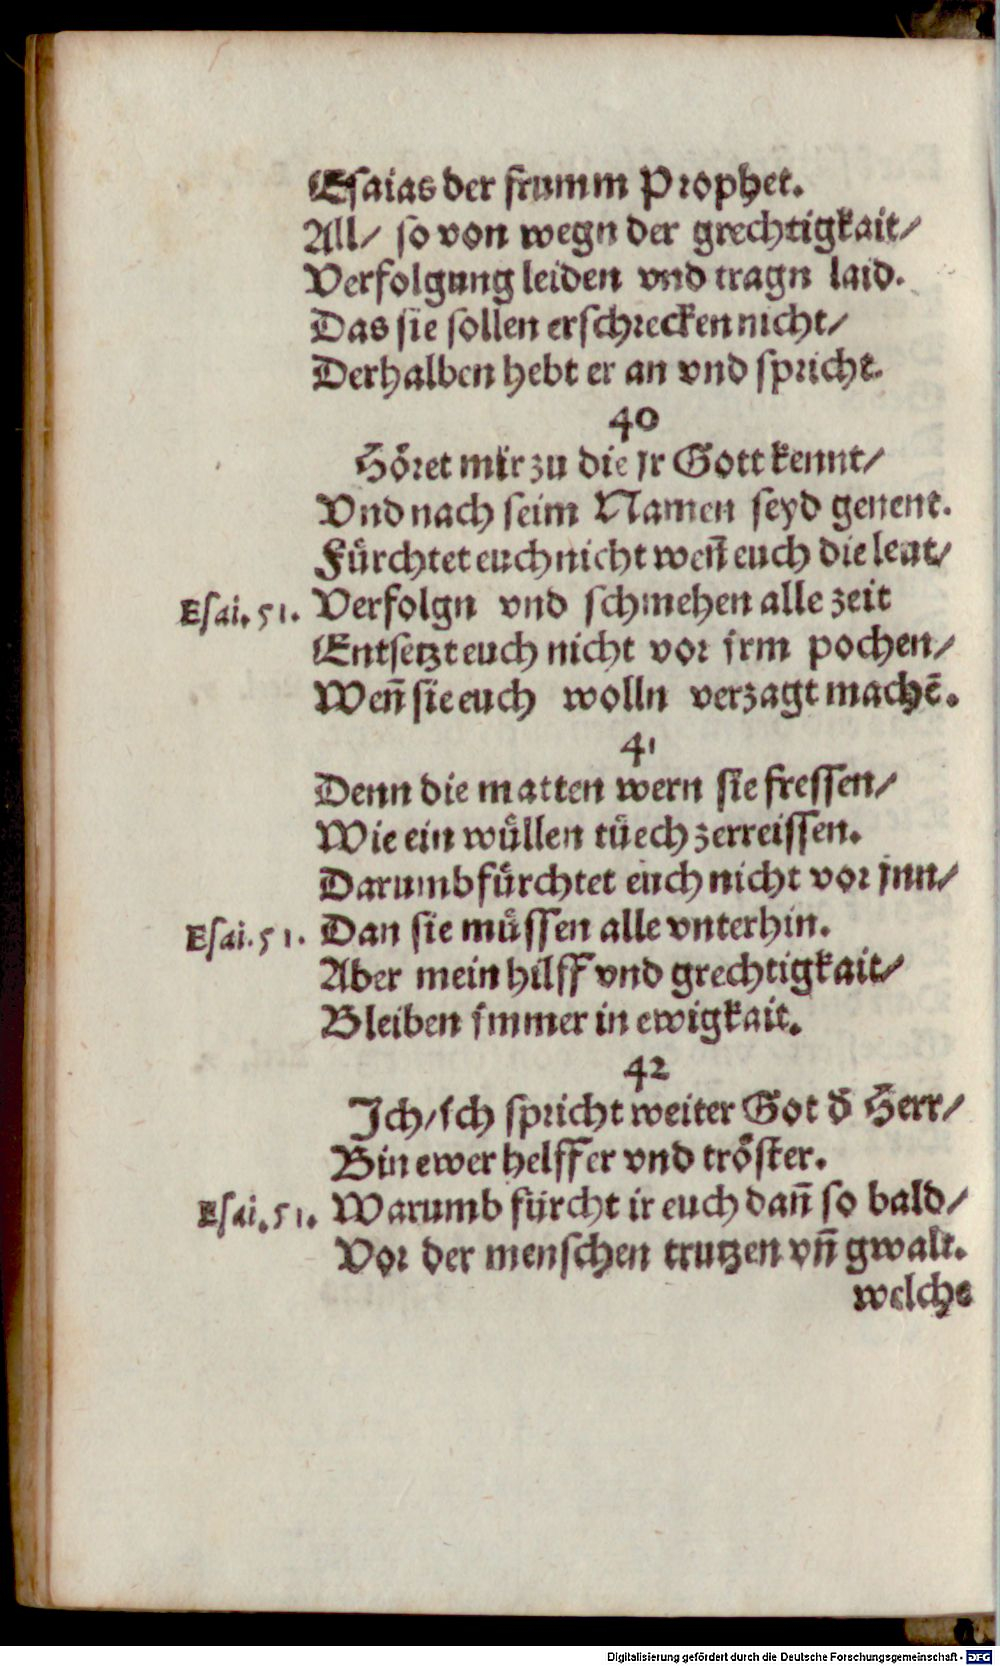 Esaias der frumm Prophet.
All/ so von wegn der grechtigkait/
Verfolgung leiden vnd tragn laid.
Das sie sollen erschrecken nicht/
Derhalben hebt er an vnd spricht.
40
Höret mir zu die jr Gott kennt/
Vnd nach seim Namen seyd genent.
Fürchtet euch nicht weñ euch die leut/
Esai. 51. Verfolgn vnd schmehen alle zeit
Entsetzt euch nicht vor jrm pochen/
Weñ sie euch wolln verzagt machē.
41
Denn die matten wern sie fressen/
Wie ein wüllen tüech zerreissen.
Darumb fürchtet euch nicht vor jnn/
Esai. 51. Dan sie müssen alle vnterhin.
Aber mein hilff vnd grechtigkait/
Bleiben jmmer in ewigkait.
42
Ich/ ich spricht weiter Got d̄ Herr/
Bin ewer helffer vnd tröster.
Esai. 51. Warumb fürcht ir euch dañ so bald/
Vor der menschen trutzen vñ gwalt.
welche
Digitalisierung gefördert durch die Deutsche Forschungsgemeinschaft - DFG